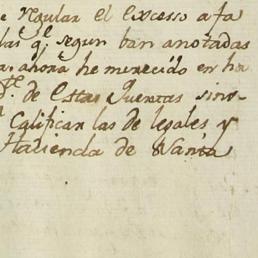 e regular el excesso a fa
las q.e segun ban anotadas
a. ahora he merecido en ha
de estas Quentas sino
Calificar las de legales y
Hacienda de